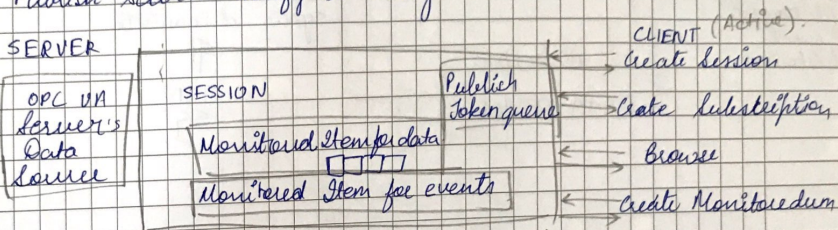 SERVER
OPC UA
Server's
Data
Source
SESSION
Publich
Token queue
Monitored Item for data
Monitered Item for events
CLIENT (Active).
Create Session
Create Substription
Browse
Create Monitoredum